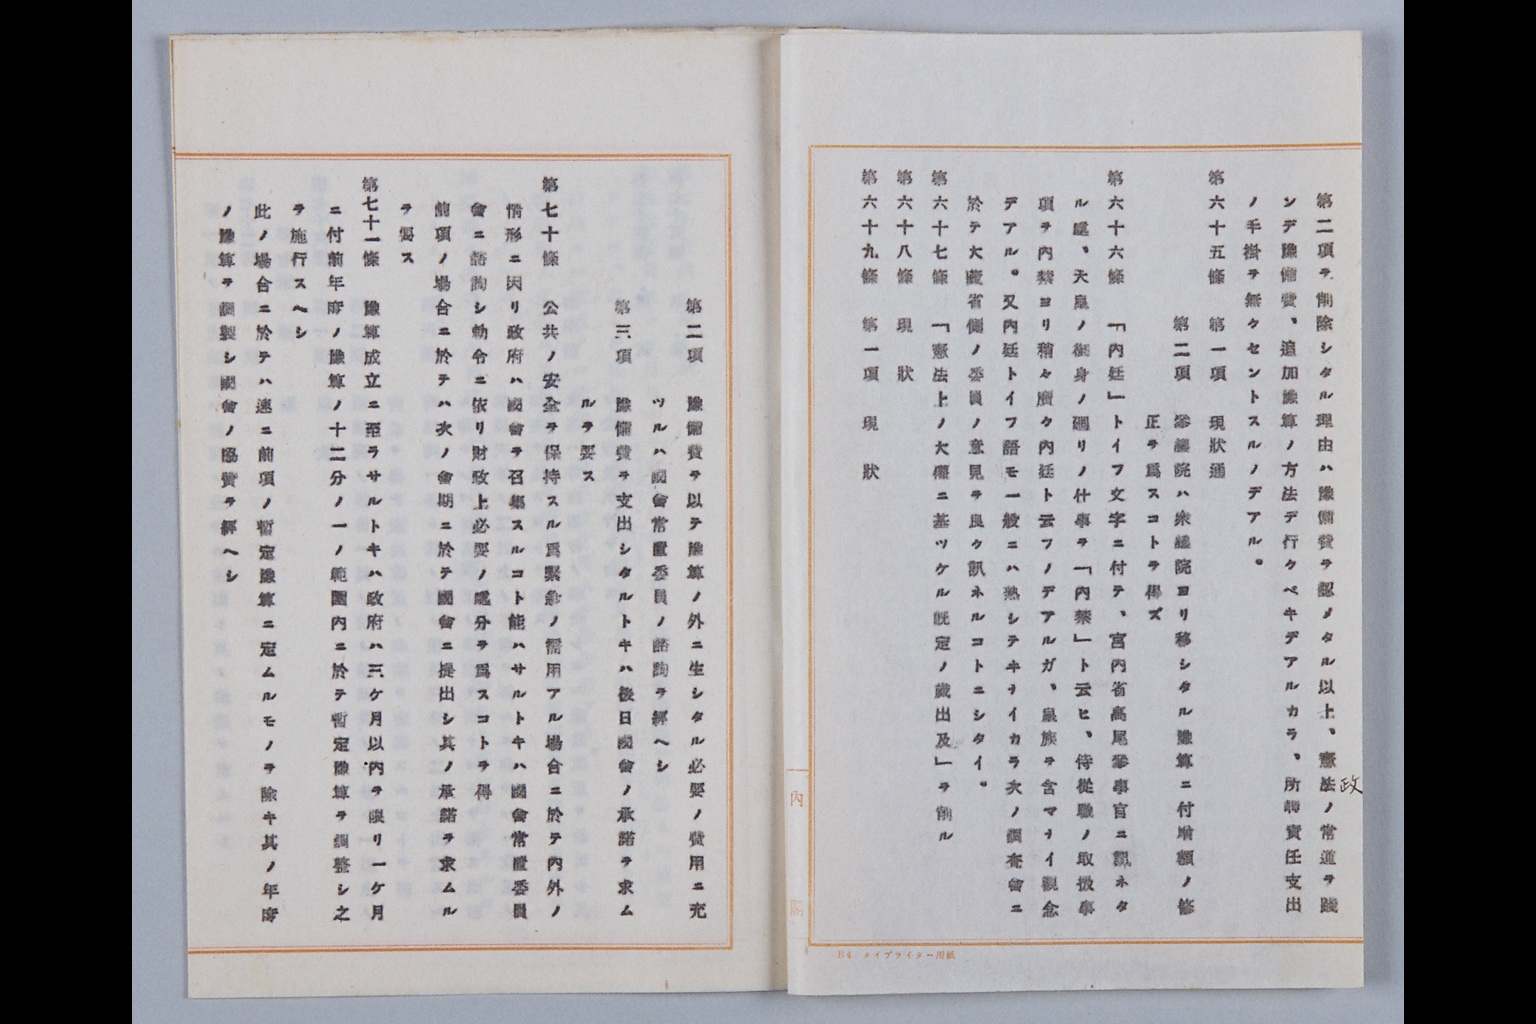 第二項ヲ削除シタル理由ハ豫備費ヲ認メタル以上、憲法ノ常道ヲ踐
政
ンデ豫備費、追加豫算ノ方法デ行クベキデアルカラ、所謂責任支出
ノ手掛ヲ無クセントスルノデアル。
第六十五條 第一項 現狀通
第二項 參議院ハ衆議院ヨリ移シタル豫算ニ付增額ノ修
正ヲ爲スコトヲ得ズ
第六十六條 「內廷」トイフ文字ニ付テ、宮內省高尾參事官ニ訊ネタ
ル處、天皇ノ御身ノ廻リノ什事ヲ「內禁」ト云ヒ、侍從職ノ取扱事
項ヲ內禁ヨリ稍々廣ク內廷ト云フノデアルガ、皇族ヲ含マナイ觀念
デアル。又內廷トイフ語モ一般ニハ熟シテヰナイカラ次ノ調査會ニ
於テ大藏省側ノ委員ノ意見ヲ良ク訊ネルコトニシタイ。
第六十七條 「憲法上ノ大權ニ基ツケル既定ノ歲出及」ヲ削ル
第六十八條 現 狀
第六十九條 第一項 現 狀
內閣
B4 タイプライター用紙
第二項 豫備費ヲ以テ豫算ノ外ニ生シタル必要ノ費用ニ充
ツルハ國會常置委員ノ諮詢ヲ經ヘシ
第三項 豫備費ヲ支出シタルトキハ後日國會ノ承諾ヲ求ム
ルヲ要ス
第七十條 公共ノ安全ヲ保持スル爲緊急ノ需用アル場合ニ於テ內外ノ
情形ニ因リ政府ハ國會ヲ召集スルコト能ハサルトキハ國會常置委員
會ニ諮詢シ勅令ニ依リ財政上必要ノ處分ヲ爲スコトヲ得
前項ノ場合ニ於テハ次ノ會期ニ於テ國會ニ提出シ其ノ承諾ヲ求ムル
ヲ要ス
第七十一條 豫算成立ニ至ラサルトキハ政府ハ三ケ月以內ヲ限リ一ケ月
ニ付前年度ノ豫算ノ十二分ノ一ノ範圍內ニ於テ暫定豫算ヲ調整シ之
ヲ施行スヘシ
此ノ場合ニ於テハ速ニ前項ノ暫定豫算ニ定ムルモノヲ除キ其ノ年度
ノ豫算ヲ調製シ國會ノ協贊ヲ經ヘシ